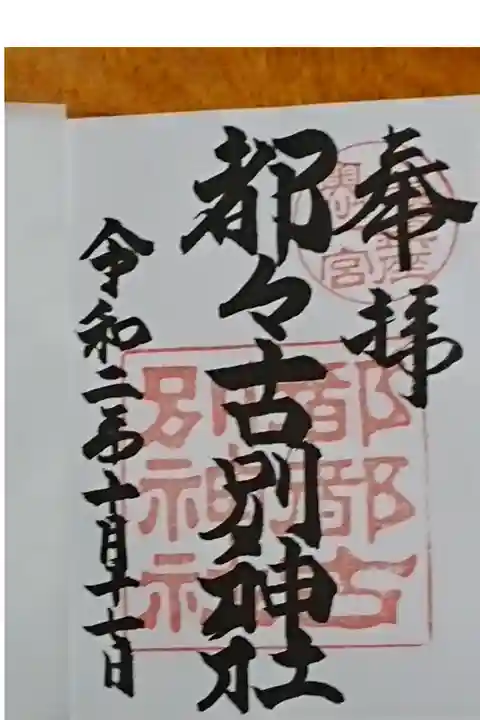 奉拝
都々古別神社
令和二年十月十一日
都都古
別神社